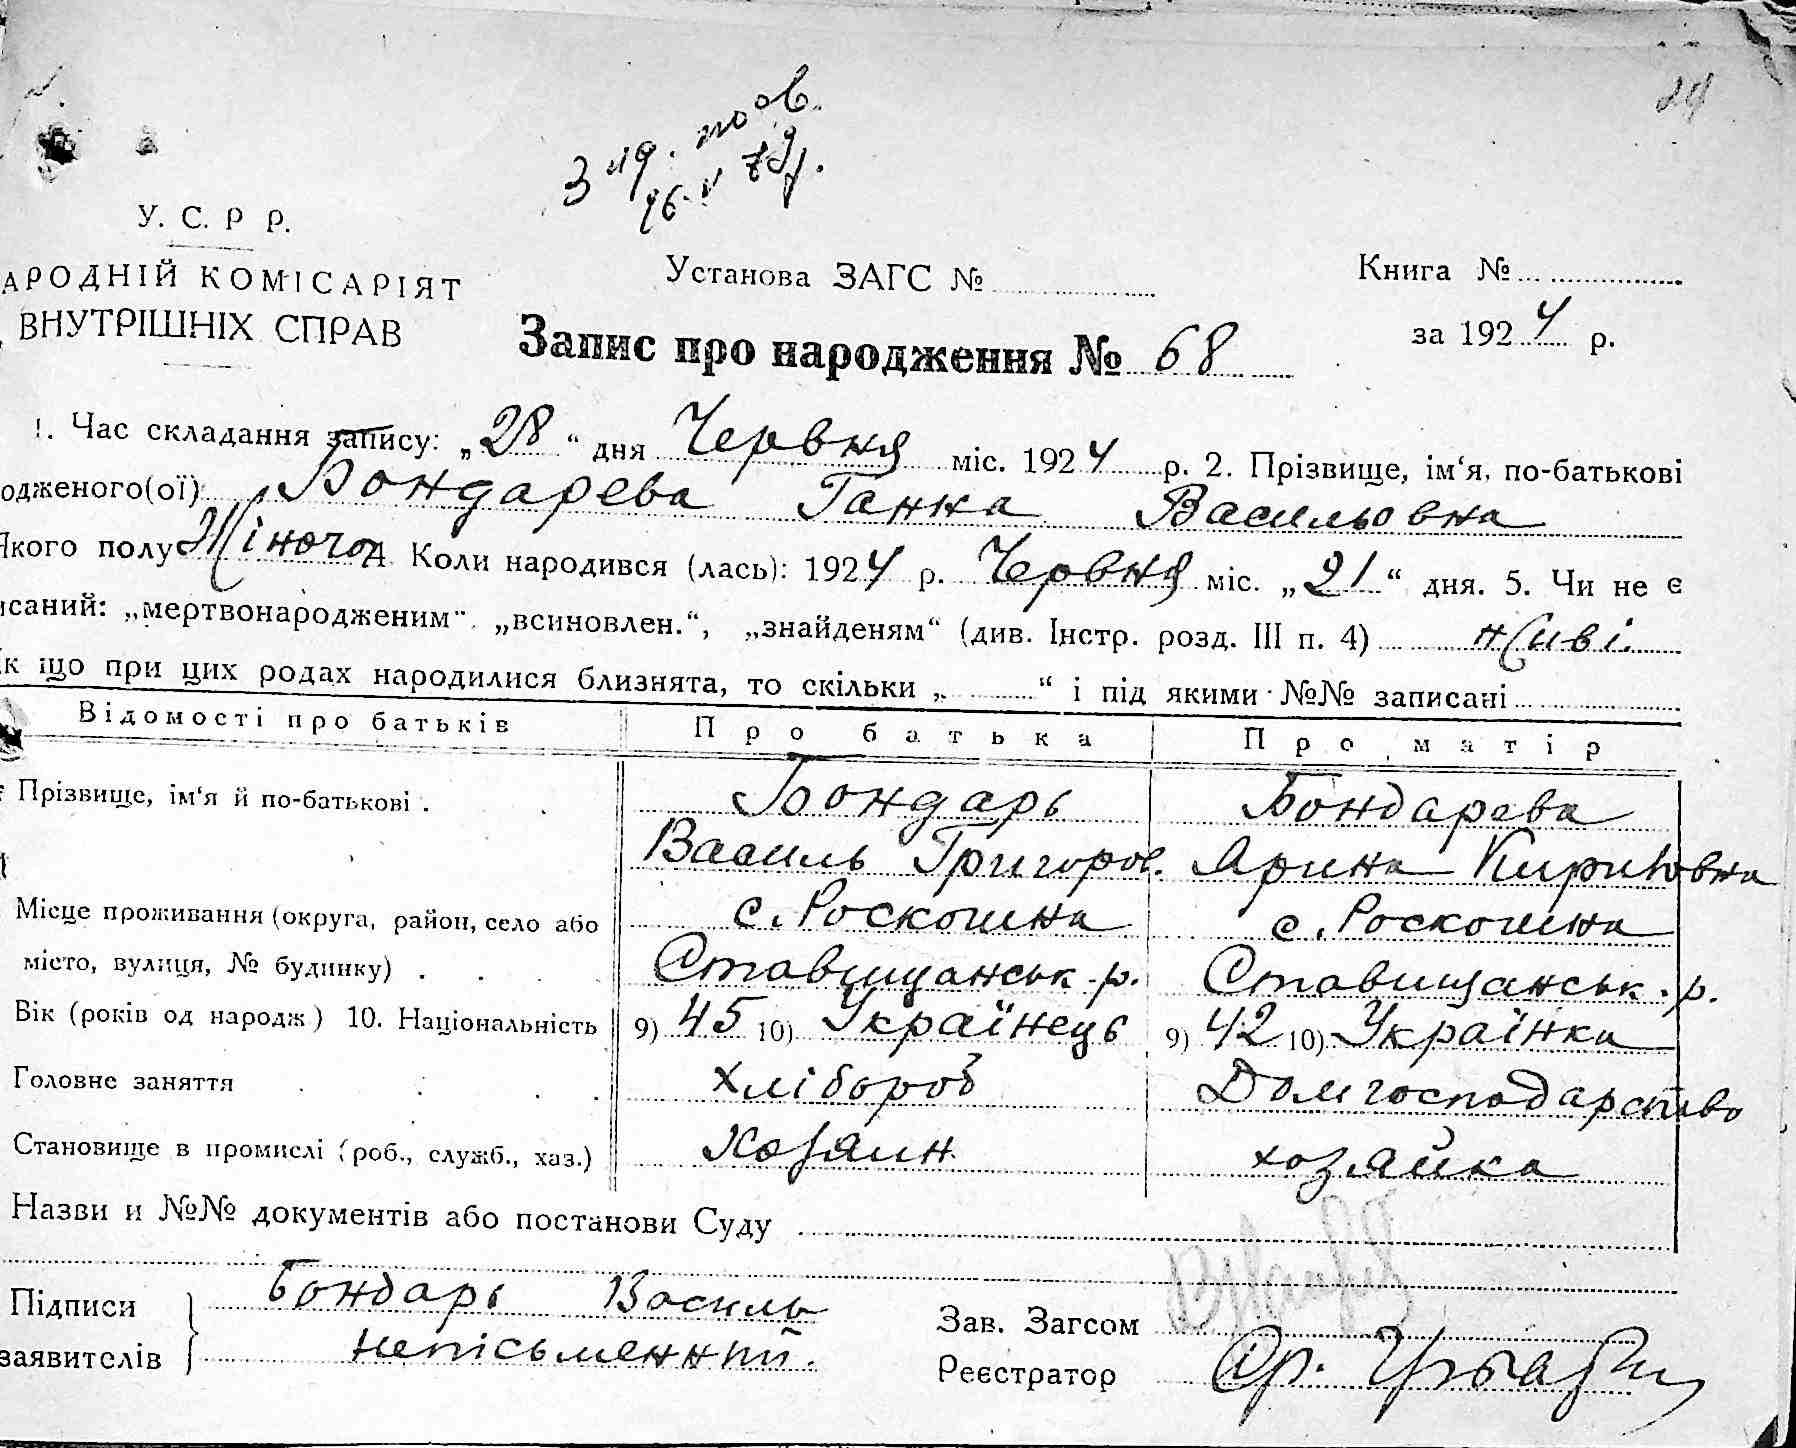 24
У. С. Р Р.
АРОДНІЙ КОМІСАРІЯТ
ВНУТРІШНІХ СПРАВ
Установа ЗАГС №
Книга №
за 1924 р.
Запис про народження № 68
1. Час складання запису: „28“ дня Червня міс. 1924 р. 2. Прізвище, ім‘я, по-батькові
одженого(ої) Бондарева Ганна Васильовна
Якого полу Жіночо Коли народився (лась): 1924 р. Червня міс. „21“ дня. 5. Чи не є
исаний: „мертвонародженим“ „всиновлен.“, „знайденям“ (див. Інстр. розд. III п. 4) живі.
к що при цих родах народилися близнята, то скільки „ “ і під якими №№ записані
Відомості про батьків Про батька Про матір
Прізвище, ім‘я й по-батькові . Бондарь Бондарева
Василь Григоров. Ярина Кириловна
Місце проживання (округа, район, село або с. Роскошна с. Роскошна
місто, вулиця, № будинку) . Ставищанськ. р. Ставищанськ. р.
Вік (років од народж) 10. Національність 9) 45 10) Українець 9) 42 10) Українка
Головне заняття хлібороб Домгосподарство
Становище в промислі (роб., служб., хаз.) Хозяин хозяйка
Назви и №№ документів або постанови Суду
Підписи Бондарь Василь
заявителів неписьменний.
Зав. Загсом
Реєстратор